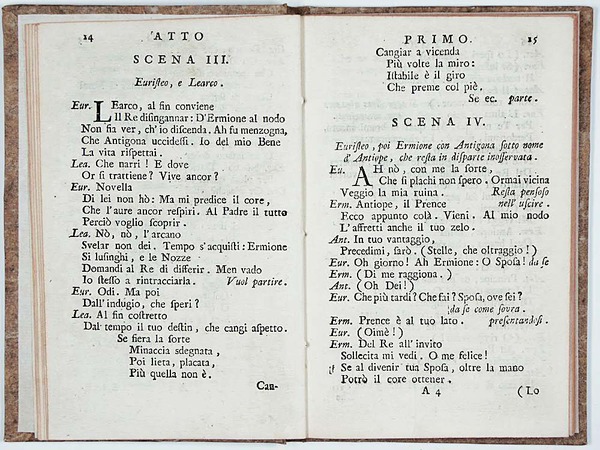 14 ATTO
SCENA III.
Euristeo, e Learco.
Eur. LEarco, al fin conviene
Il Re disingannar: D'Ermione al nodo
Non fia ver, ch'io discenda. Ah fu menzogna,
Che Antigona uccidessi. Io del mio Bene
La vita rispettai.
Lea. Che narri! E dove
Or si trattiene? Vive ancor?
Eur. Novella
Di lei non hò: Ma mi predice il core,
Che l'aure ancor respiri. Al Padre il tutto
Perciò voglio scoprir.
Lea. Nò, nò, l'arcano
Svelar non dei. Tempo s'acquisti: Ermione
Si lusinghi, e le Nozze
Domandi al Re di differir. Men vado
Io stesso a rintracciarla. Vuol partire.
Eur. Odi. Ma poi
Dall'indugio, che speri?
Lea. Al fin costretto
Dal tempo il tuo destin, che cangi aspetto.
Se fiera la sorte
Minaccia sdegnata,
Poi lieta, placata,
Più quella non è.
Can-
PRIMO. 15
Cangiar a vicenda
Più volte la miro:
Istabile è il giro
Che preme col piè.
Se ec. parte.
SCENA IV.
Euristeo, poi Ermione con Antigona sotto nome
d'Antiope, che resta in disparte inosservata.
Eu. AH nò, con me la sorte,
Che si plachi non spero. Ormai vicina
Veggio la mia ruina. Resta pensoso
Erm. Antiope, il Prence nell'uscire.
Ecco appunto colà. Vieni. Al mio nodo
L'affretti anche il tuo zelo.
Ant. In tuo vantaggio,
Precedimi, sarò. (Stelle, che oltraggio!)
Eur. Oh giorno! Ah Ermione: O Sposa! da se
Erm. (Di me raggiona.)
Ant. (Oh Dei!)
Eur. Che più tardi? Che fai? Sposa, ove sei?
da se come sovra.
Erm. Prence è al tuo lato. presentandosi.
Eur. (Oimè!)
Erm. Del Re all'invito
Sollecita mi vedi. O me felice!
Se al divenir tua Sposa, oltre la mano
Potrò il core ottener.
A 4 (Lo